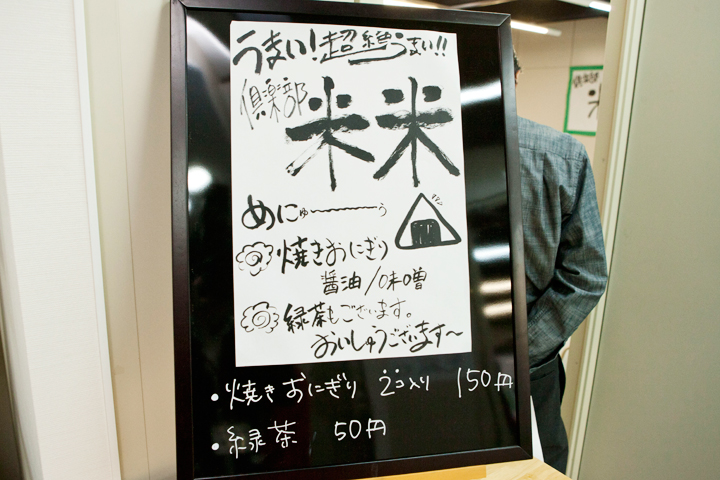 うまい!超絶うまい!!
倶楽部 米米
めにゅ〜〜ぅ
焼きおにぎり
醤油/味噌
緑茶もございます。
おいしゅうございます〜
・焼きおにぎり 2コ入り 150円
・緑茶 50円